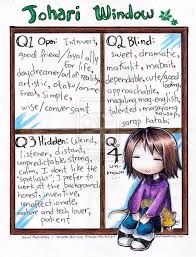 Johari Window
Q1 Open: Introvert,
good friend / loyal ally
for life,
daydreamer/out of reality
artistic, otaku/anime
freak, simple,
wise / conversant
Q2 Blind:
sweet, dramatic,
makulit, mabait,
dependable, cute/good
looking,
approachable,
magaling mag-english,
talented, masayang
kasama,
sarap katabi
Q3 Hidden: Weird,
listener, distant,
unpredictable, strong,
calm, I don't like the
"spotlight", I prefer to
work at the background
honest, inventive,
unaffectionate,
nature and tech lover,
patient
Q4
unknown